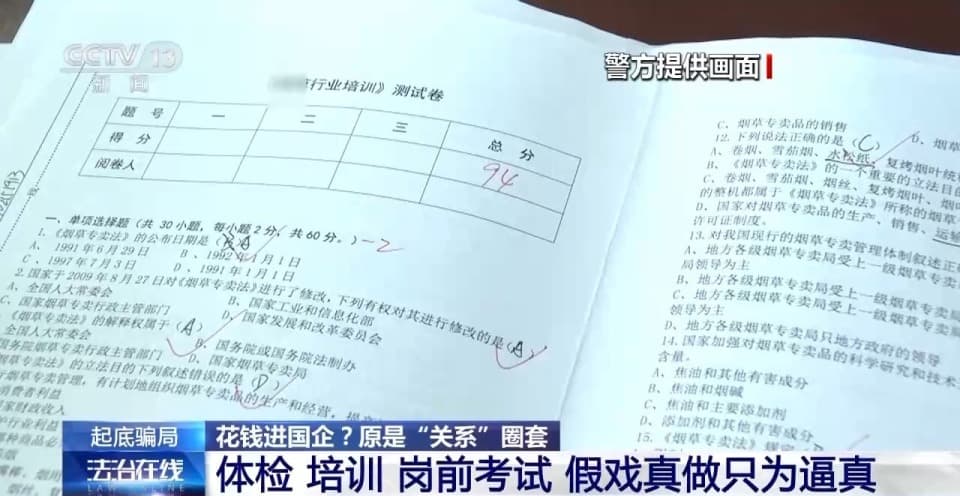 CCTV 13
新闻
警方提供画面
行业培训》测试卷
题 号 一 二 三 总 分
得 分 94
阅卷人
一、单项选择题（共 30 小题，每小题 2 分，共 60 分。） -2
1.《烟草专卖法》的公布日期是（A）
A、1991 年 6 月 29 日 B、1992 年 1 月 1 日
C、1997 年 7 月 3 日 D、1991 年 1 月 1 日
2.国家于 2009 年 8 月 27 日对《烟草专卖法》进行了修改，下列有权对其进行修改的是（A）
A、全国人大常委会 B、国家工业和信息化部
C、国家烟草专卖行政主管部门 D、国家发展和改革委员会
《烟草专卖法》的解释权属于（A）
全国人大常委会 B、国务院或国务院法制办
国务院烟草专卖行政主管部门 D、国家烟草专卖局
烟草专卖法》的立法目的下列叙述错误的是（D）
烟草专卖管理，有计划地组织烟草专卖品的生产和经营，
消费者利益
国家财政收入
行业利益
C、烟草专卖品的销售 D、烟草
12.下列说法正确的是（C）
A、卷烟、雪茄烟、水松纸、复烤烟叶统
B、《烟草专卖法》的一个重要的立法目的
C、卷烟、雪茄烟、烟丝、复烤烟叶、烟叶
的整机都属于《烟草专卖法》所称的烟草
D、国家对烟草专卖品的生产、销售、运输
许可证制度。
13.对我国现行的烟草专卖管理体制叙述正
A、地方各级烟草专卖局受上一级烟草专卖
局领导为主
B、地方各级烟草专卖局受上一级烟草专卖
C、地方各级烟草专卖局受上一级烟草专卖
领导为主
D、地方各级烟草专卖局只地方政府的领导
14.国家加强对烟草专卖品的科学研究和技术
含量。
A、焦油和其他有害成分
B、焦油和烟碱
C、焦油和主要添加剂
D、添加剂和其他有害成分
15.《烟草专卖法》规定
起底骗局
花钱进国企？原是“关系”圈套
法治在线
体检 培训 岗前考试 假戏真做只为逼真